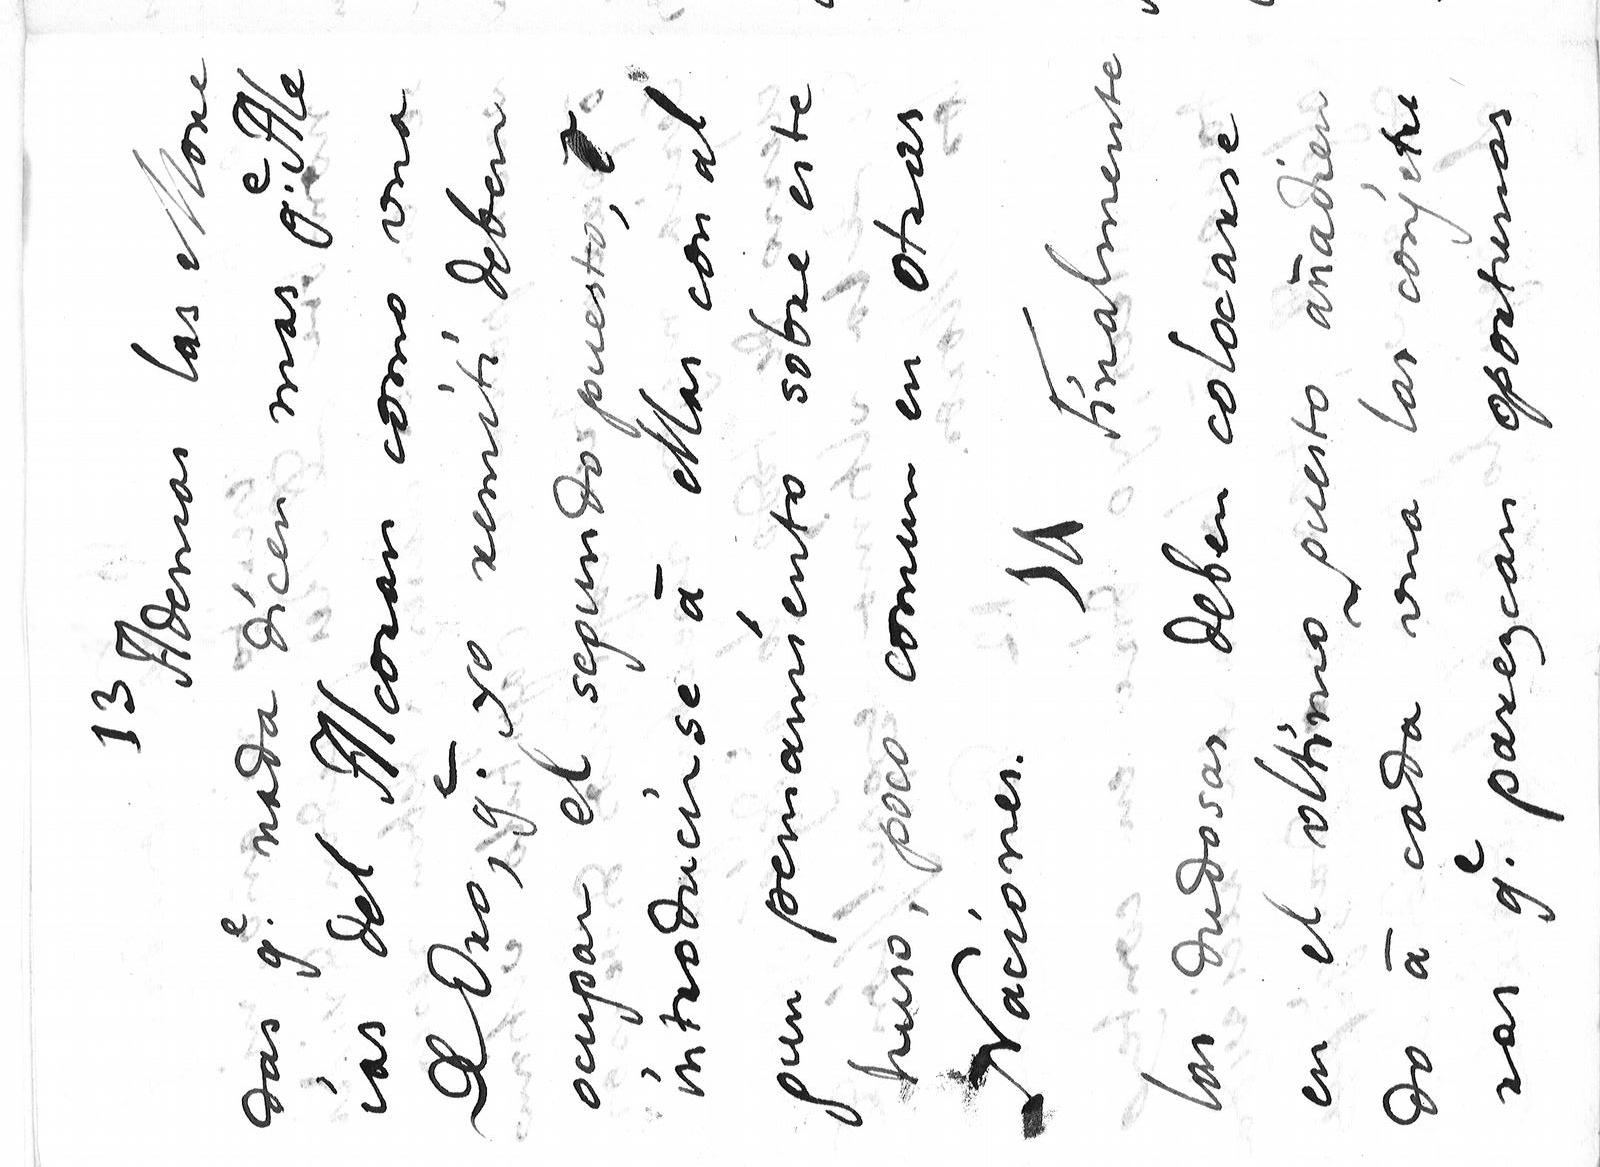 13
Ademas las Mone
das q.e nada dicen mas q.e Ale
ias del Alcoran como vna
De Oro, q.e yo remiti deben
ocupar el segundo puesto,
introducirse â Mas con al
gun pensamiento sobre este
huso, poco comun en otras
Naciones.
14
Finalmente
las dudosas deben colocarse
en el vltimo puesto añadien
do â cada vna las conjetu
ras q.e parezcan oportunas